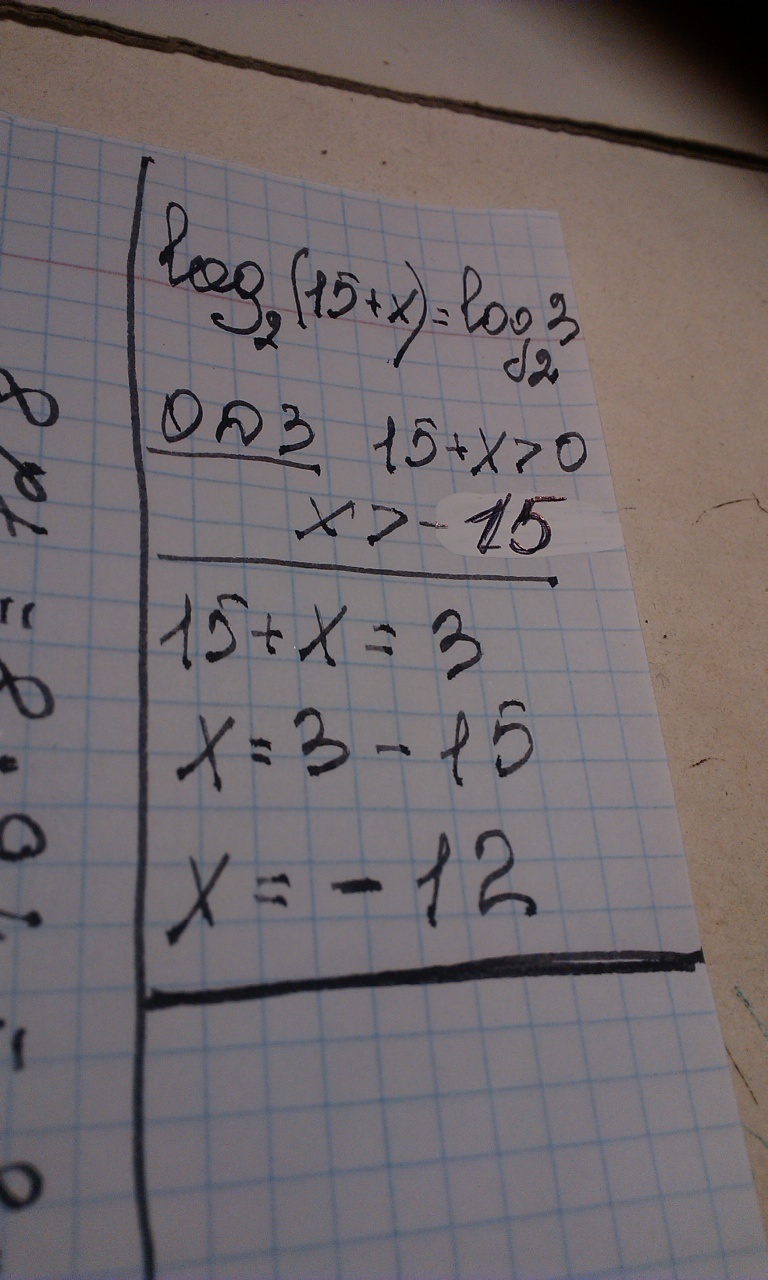 log₂(15+x)=log₂3
ОДЗ 15+x>0
x>-15
15+x=3
x=3-15
x=-12